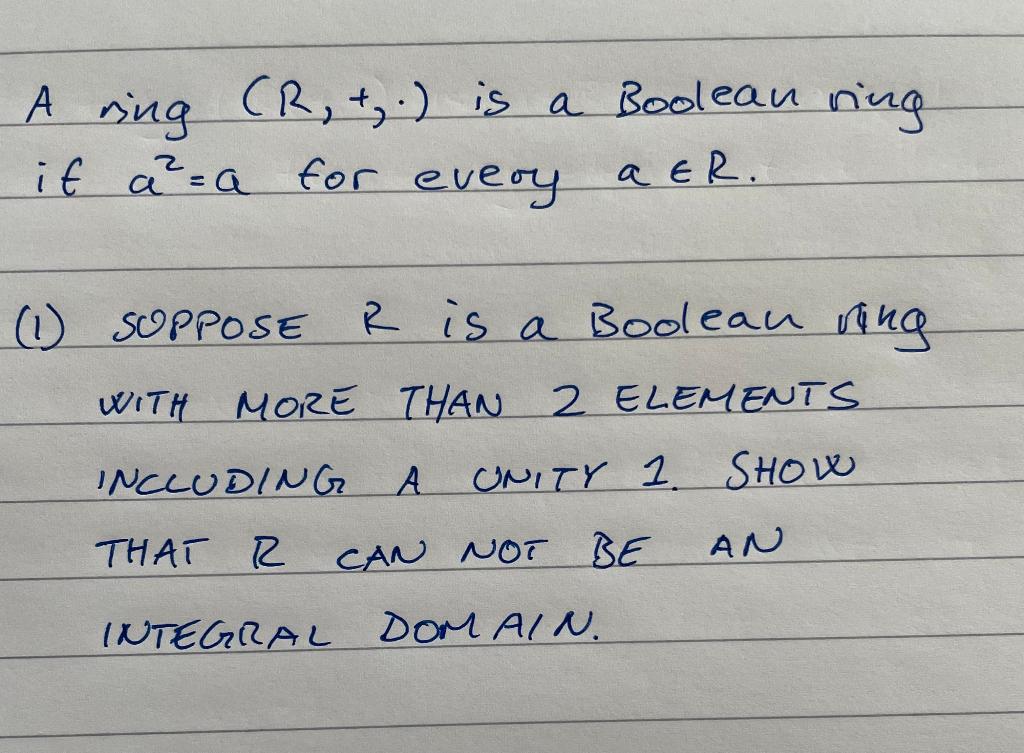 A ring (R, +, ·) is a Boolean ring
if a² = a for every a ∈ R.
(1) SUPPOSE R is a Boolean ring
WITH MORE THAN 2 ELEMENTS
INCLUDING A UNITY 1. SHOW
THAT R CAN NOT BE AN
INTEGRAL DOMAIN.